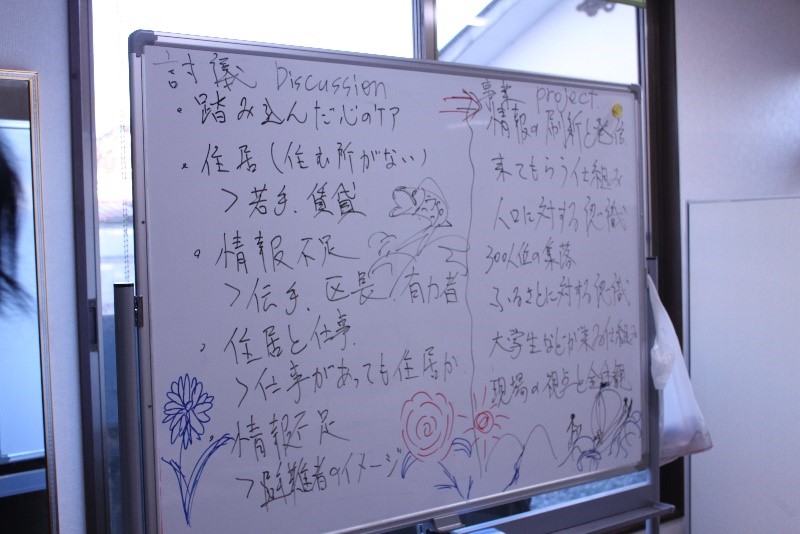 討議 Discussion
・踏み込んだ心のケア
・住居(住む所がない)
>若手、賃貸
・情報不足
>伝手、区長、有力者
・住居と仕事
>仕事があっても住居が
・情報不足
>避難者のイメージ
事業 project
情報の刷新と発信
来てもらう仕組み
人口に対する意識
300人位の集落
ふるさとに対する意識
大学生などが来る仕組み
現場の視点と全体観